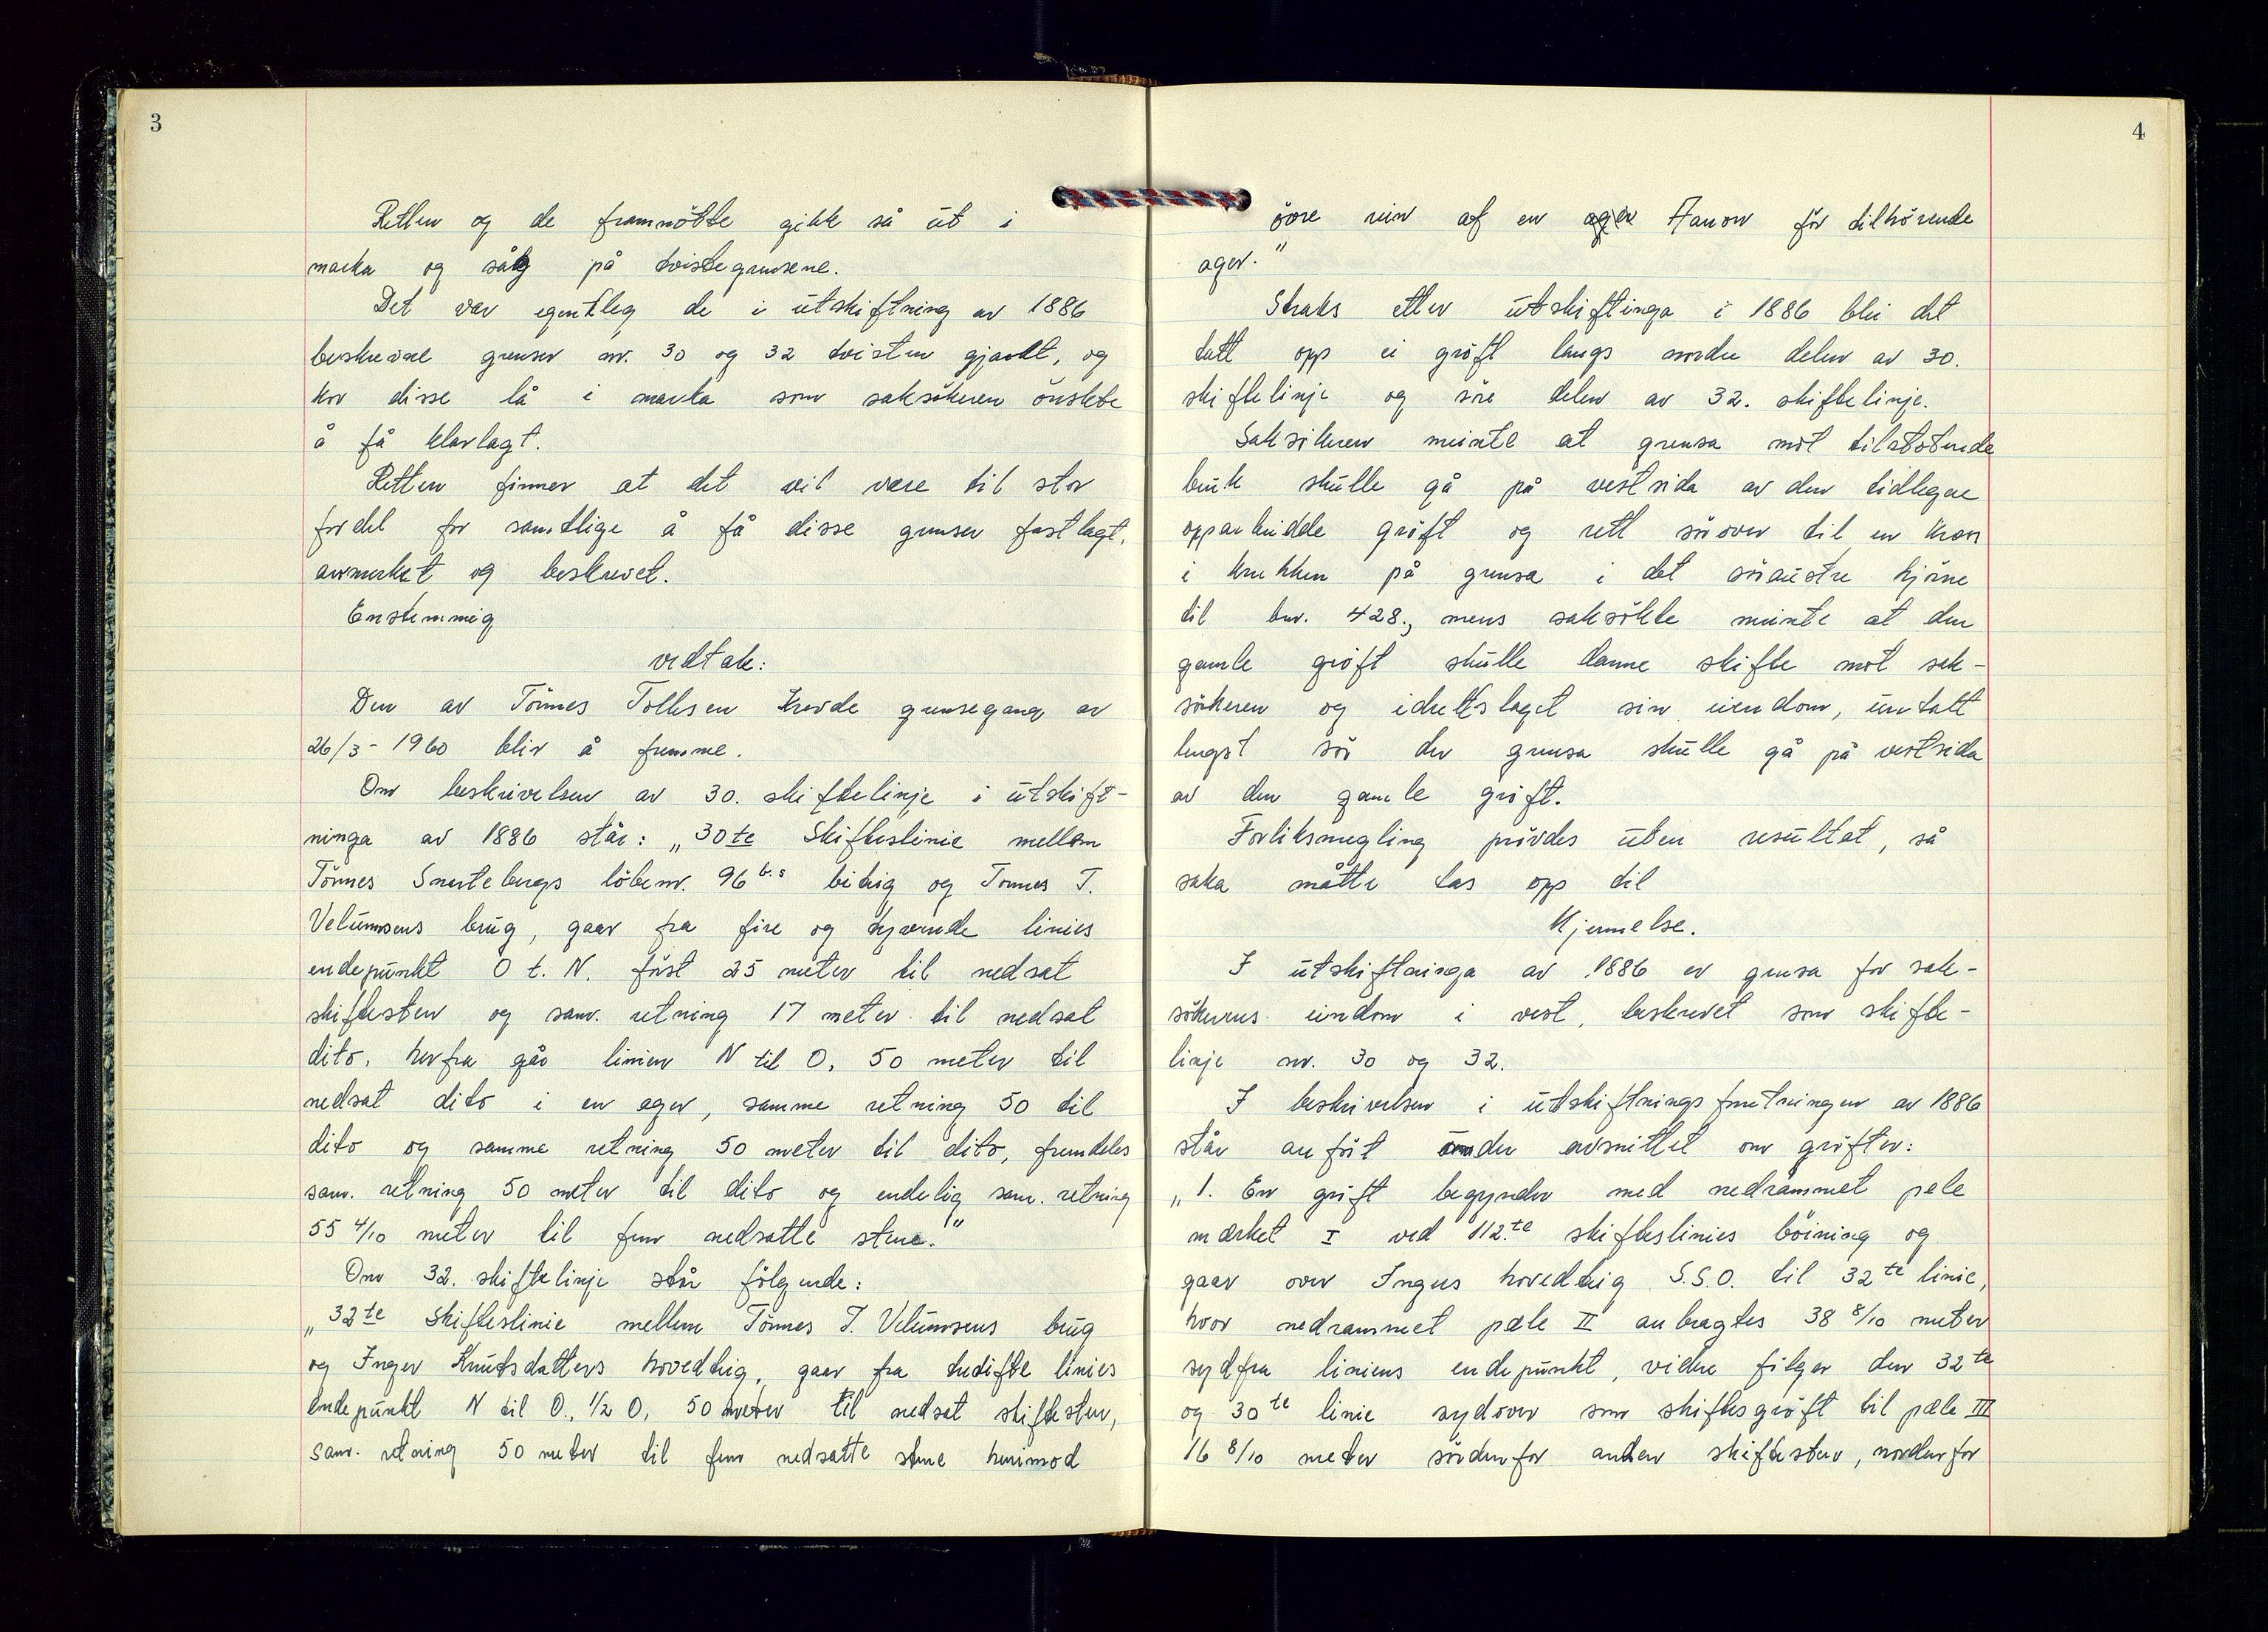 3
Retten og de frammötte gikk så ut i
marka og såg på tvistegrensene.
Det var egentleg de i utskiftning av 1886
beskrevne grenser nr. 30 og 32 tvisten gjaldt, og
kor disse lå i marka som saksökeren önskte
å få klarlagt.
Retten finner at det vil være til stor
fordel for samtlige å få disse grenser fastlagt,
avmerket og beskrevet.
Enstemmig
vedtak:
Den av Tönnes Tollksen krevde grensegang av
26/3 - 1960 blir å fremme.
Om beskrivelsen av 30. skiftelinje i utskift-
ninga av 1886 står: „30te Skifteslinie mellom
Tönnes Snartebergs löbenr. 96 b.s bitrig og Tönnes T.
Velumsens brug, gaar fra fire og tjvende linies
endepunkt O t. N. först 25 meter til nedsat
skiftesten og sam. retning 17 meter til nedsat
dito, herfra går linien N til O, 50 meter til
nedsat dito i en ager, samme retning 50 til
dito og samme retning 50 meter til dito, fremdeles
sam. retning 50 meter til dito og endelig sam. retning
55 4/10 meter til fem nedsatte stene."
Om 32. skiftelinje står fölgende:
„32te Skifteslinie mellem Tönnes T. Velumsens brug
og Inger Knutsdatters hovedteig, gaar fra tredifte linies
endepunkt N til O., 1/2 O, 50 meter til nedsat skiftesten,
sam. retning 50 meter til fem nedsatte stene henimod
4
övre rein af en ager Aanon för tilhörende
ager."
Straks etter utskiftinga i 1886 blei det
tatt opp ei gröft langs nordre delen av 30.
skiftelinje og söre delen av 32. skiftelinje.
Saksökeren meinte at grensa mot tilstötende
bruk skulle gå på vestsida av den tidlegare
opparbeidde gröft og rett sörover til en kross
i krukken på grensa i det söraustre hjörne
til bnr. 428, mens saksökte meinte at den
gamle gröft skulle danne skifte mot sak-
sökeren og idrettslaget sin eiendom, unntatt
lengst sör der grensa skulle gå på vestsida
av den gamle gröft.
Forliksmegling prövdes uten resultat, så
saka måtte tas opp til
Kjennelse.
I utskiftninga av 1886 er grensa for sak-
sökerens eiendom i vest, beskrevet som skifte-
linje nr. 30 og 32.
I beskrivelsen i utskiftningsforretningen av 1886
står anfört under avsnittet om gröfter:
„1. En gröft begynder med nedrammet pele
mærket I ved 112.te skifteslinies böining og
gaar over Ingers hovedteig S.S.O. til 32te linie,
hvor nedrammet pæle II anbragtes 38 8/10 meter
sydfra liniens endepunkt, videre fölger den 32te
og 30te linie sydover som skiftesgröft til pæle III
16 8/10 meter söndenfor anden skiftesten, nordenfor